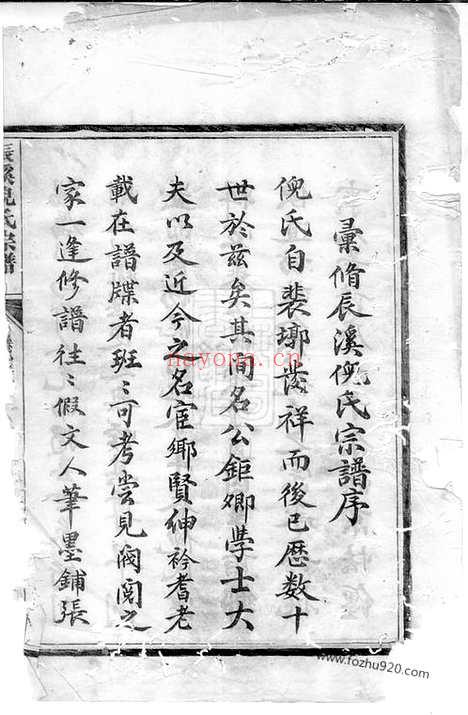 彙脩辰溪倪氏宗譜序
倪氏自裴墎發祥而後已歷数十
世於兹矣其間名公鉅卿學士大
夫以及近今之名宦鄉賢紳衿耆老
載在譜牒者班〻可考嘗見閥閲之
家一逢修譜往〻假文人筆墨鋪張
辰溪倪氏宗譜
nayona.cn
www.fozhu920.com